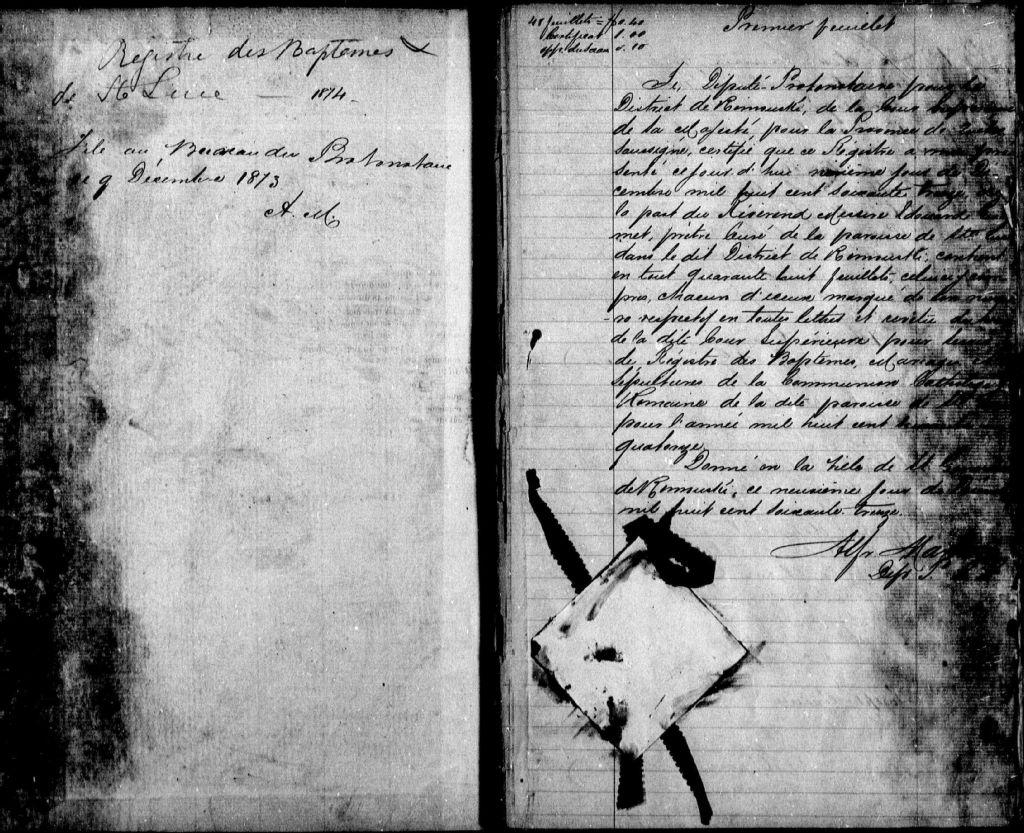 Registre des Baptêmes
de Ste Luce — 1874.
Filé au Bureau du Protonotaire
ce 9 Décembre 1873
A. M.
48 feuillets = $0.40
Certificat 1.00
app. du sceau 0.10
Premier feuillet
Je, Député-Protonotaire pour le
District de Rimouski, de la Cour Supérieure
de sa Majesté, pour la Province de Québec
soussigné, certifié que ce Registre a
senté ce jour d'hui neuvième jour de Dé
cembre mil huit cent soixante treize, de
la part du Révérend Messire Edouard
met, prêtre Curé de la paroisse de Ste
dans le dit District de Rimouski, contenant
en tout quarante huit feuillets, celui ci
pris, chacun d'iceux marqué de son numé
-ro respectif en toutes lettres et revêtu du
de la dite Cour Supérieure pour
de Régistre des Baptêmes, Mariages
Sépultures de la Communion Catholique
Romaine de la dite paroisse de Ste
pour l'année mil huit cent
quatorze.
Donné en la ville de St
de Rimouski, ce neuvième jour de
mil huit cent soixante treize.
Alf.
Dép. P.